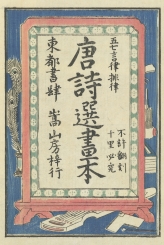 五七言律 排律
不許翻刻
千里必究
唐詩選畫本
東都書肆 嵩山房梓行